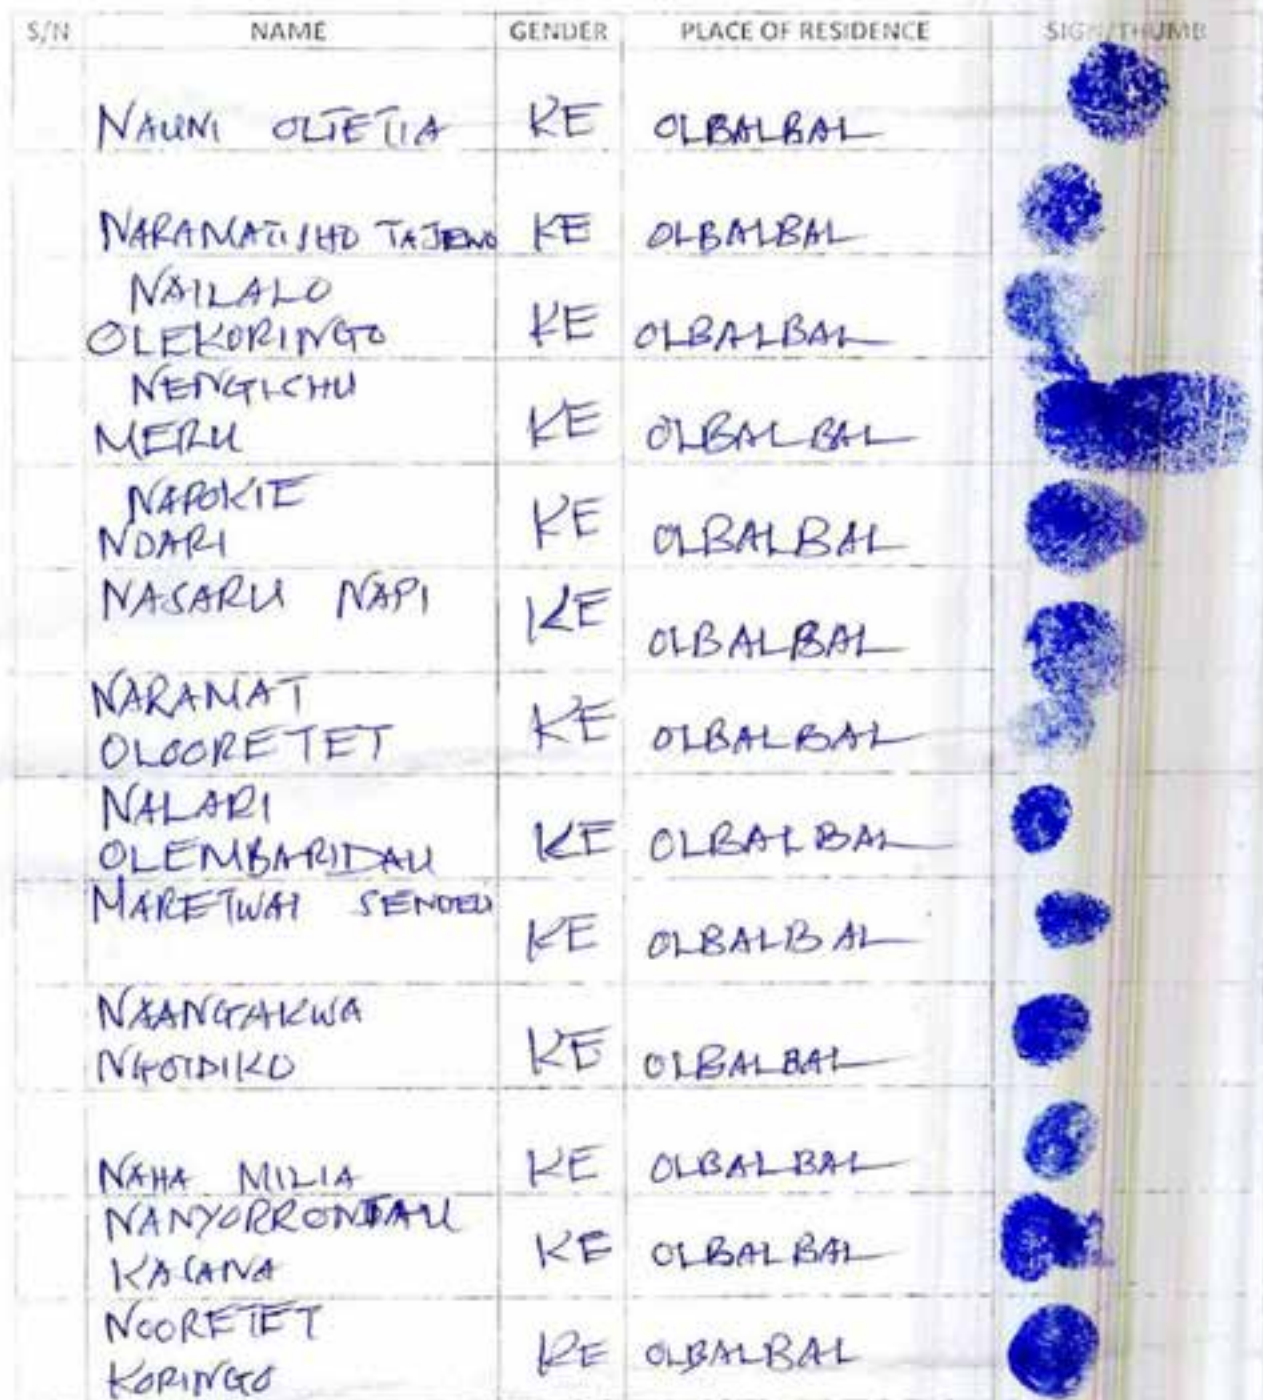 S/N NAME GENDER PLACE OF RESIDENCE SIGN/THUMB
NAUNI OLTETIA KE OLBALBAL
NARAMATISHO TAJEWO KE OLBALBAL
NAILALO
OLEKORINGO KE OLBALBAL
NENGICHU
MERU KE OLBALBAL
NAPOKIE
NDARI KE OLBALBAL
NASARU NAPI KE OLBALBAL
NARAMAT
OLOORETET KE OLBALBAL
NALARI
OLEMBARIDAU KE OLBALBAL
MARETWAI SENDEU KE OLBALBAL
NAANGAKWA
NGOIDIKO KE OLBALBAL
NAHA MILIA KE OLBALBAL
NANYORRONDAU
KASANA KE OLBALBAL
NOORETET
KORINGO KE OLBALBAL